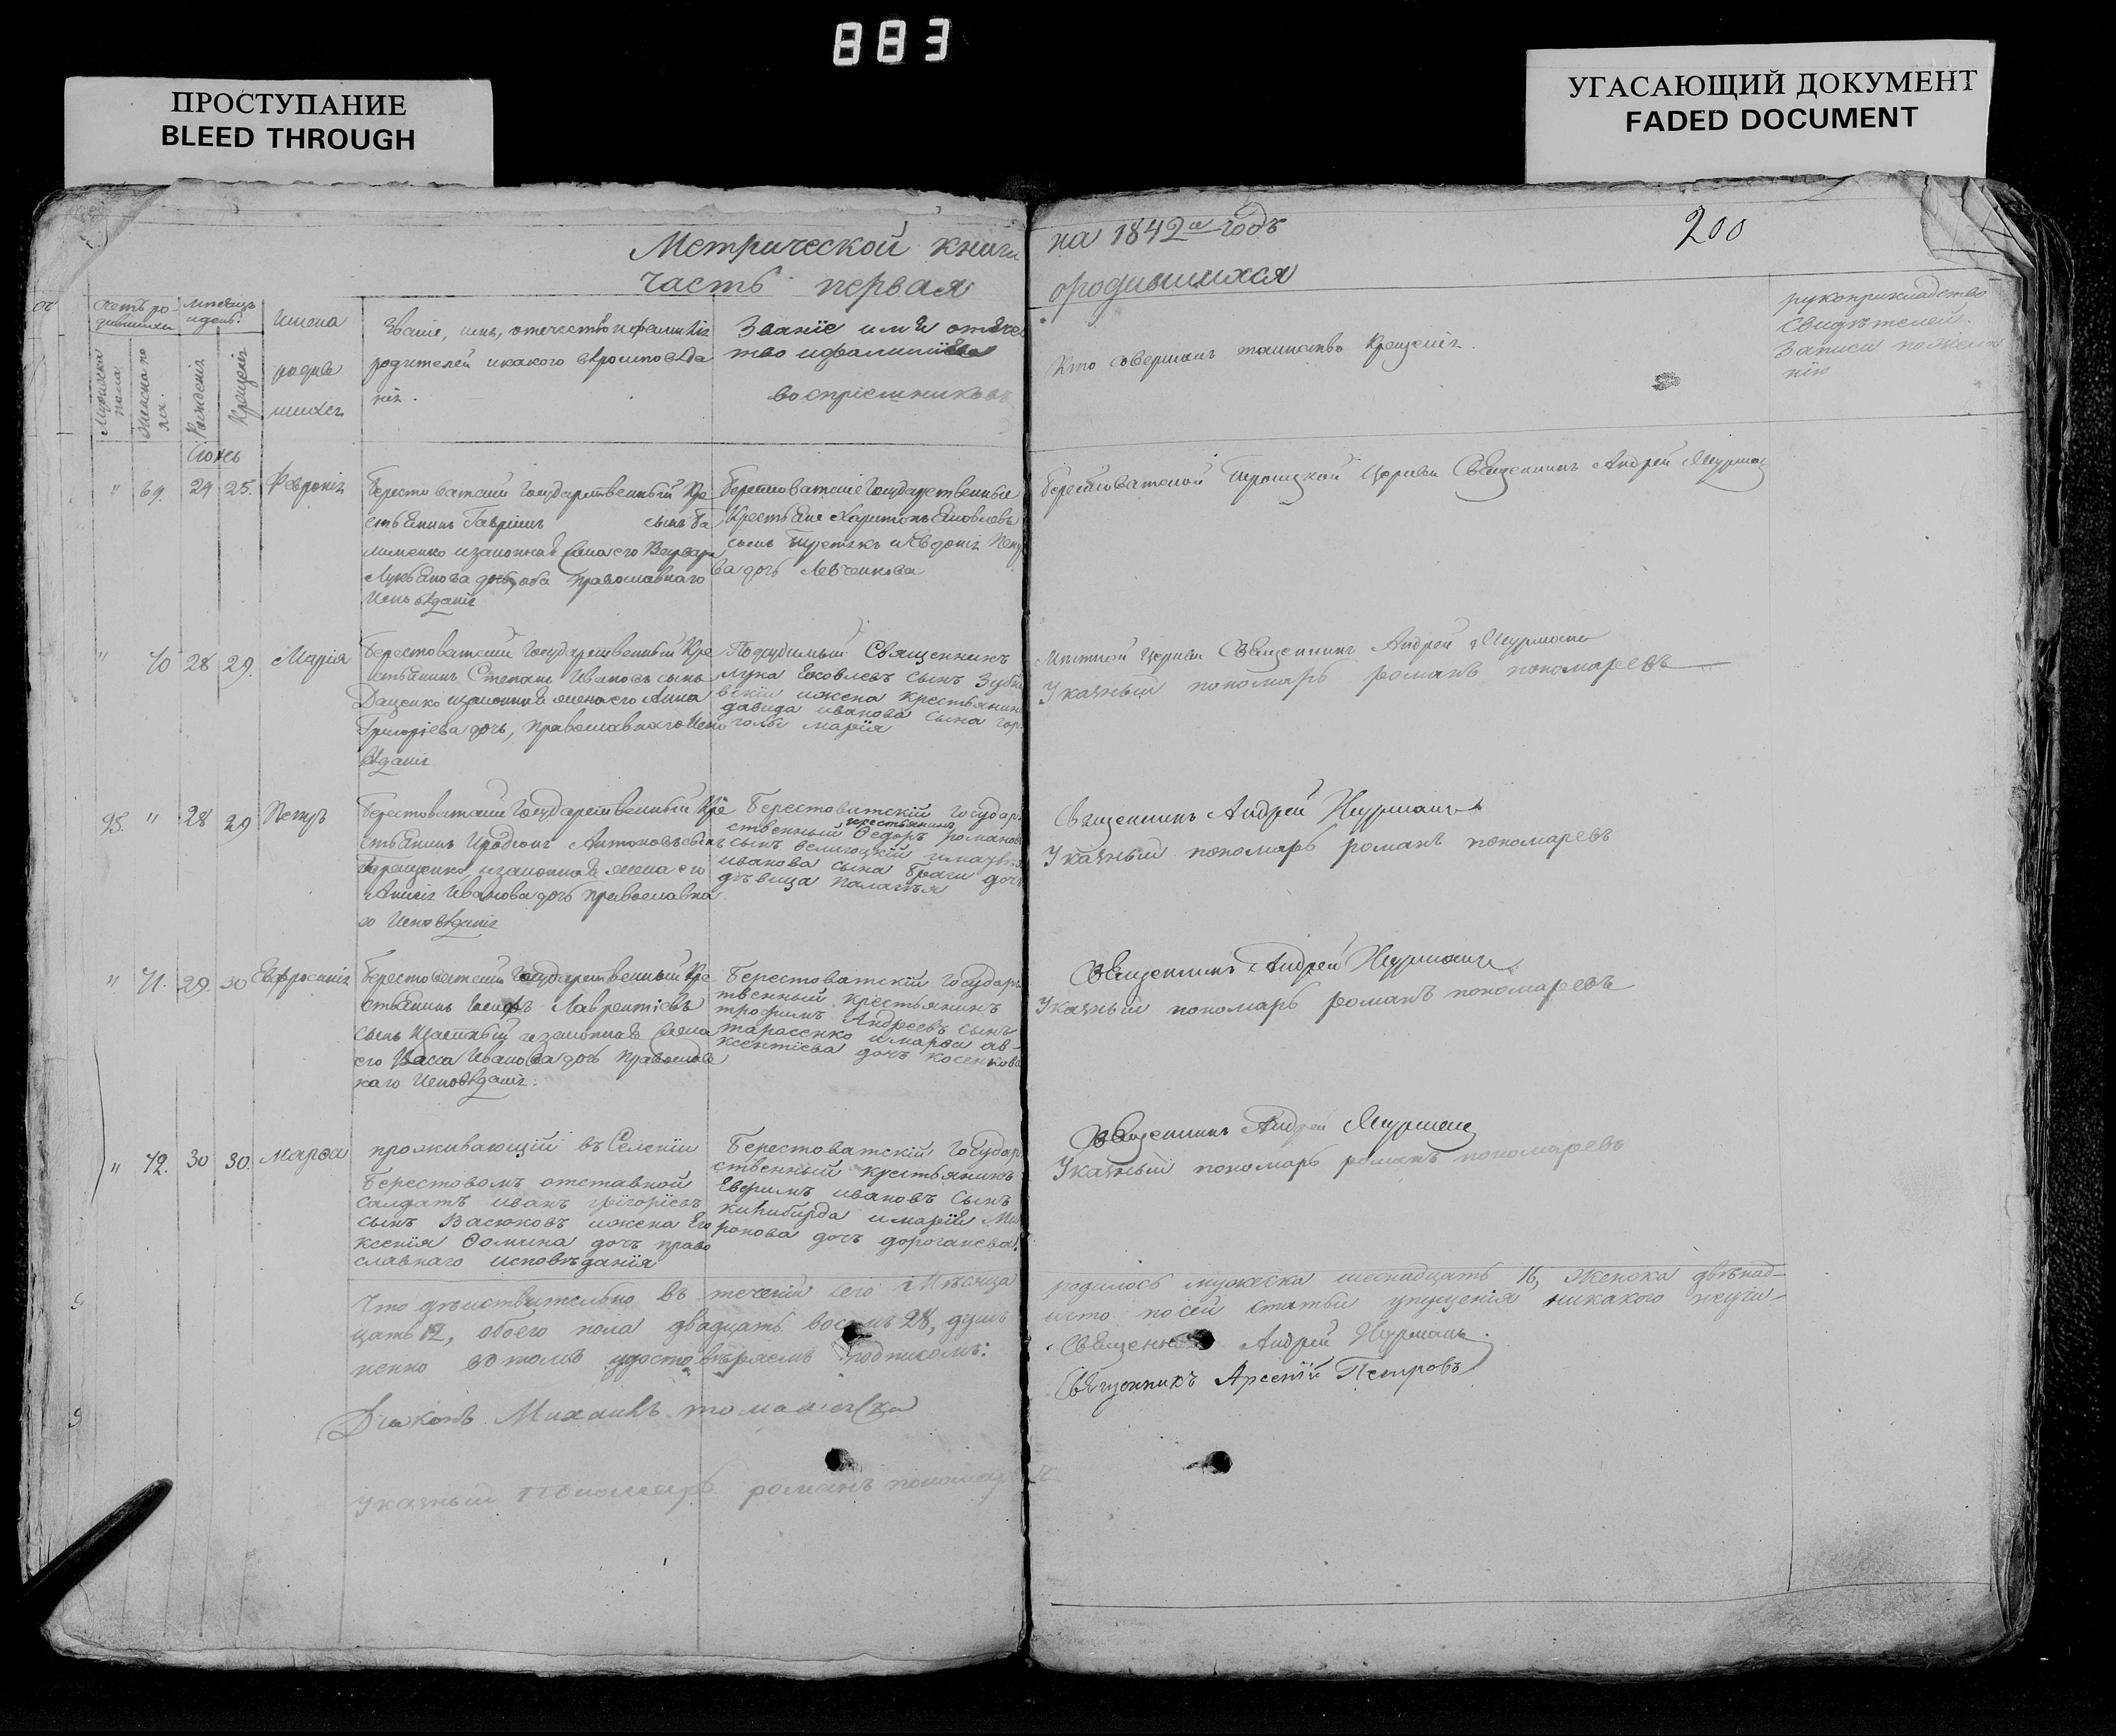 883
ПРОСТУПАНИЕ
BLEED THROUGH
УГАСАЮЩИЙ ДОКУМЕНТ
FADED DOCUMENT
Метрической книги
на 1842й годъ
200
часть первая
ородившихся
Счетъ ро-
дившихся
Мѣсяцъ
и день.
Мужеска
пола
Женска по
ла.
Рожденія
Крещенія
имена
родив
шихся
Званіе, имя, отечество и фамилія
родителей и какого вѣроисповѣда
нія.
Званіе имя отѣче
тво ифамилія
воспріемниковъ
Кто совершалъ таинство крещенія.
рукоприкладство
свидѣтелей
записи по жела
нію
Іюнь
" 69. 24 25. Февронія
Берестоватскій Государственный Кре
стьянинъ Гавріилъ сынъ Ба
лименко изаконная жена его Варвара
Лукьянова дочь, оба православнаго
Исповѣданія
Берестоватскіе Государственные
Крестьяне Харитонъ Яковлевъ
сынъ Третякъ и Евдокія Петр
ва дочь Левченкова
Берестоватской Троицкой Церкви Священникъ Андрей Журман
" 70 28 29. Марія
Берестоватскій Государственный Кре
стьянинъ Степанъ Ивановъ сынъ
Даценко изаконная жена его Анна
Григоріева дочь, православнаго Испо
вѣданія
Подсудимый Священникъ
лука Яковлевъ сынъ Зубко
вскій ижена крестьянина
давида иванова сына гор
голы марія
Мѣстной Церкви Священникъ Андрей Журманъ
Указный пономарь романъ пономаревъ
95. " 28 29 Петръ
Берестоватскій Государственный Кре
стьянинъ Иродіонъ Антоновъ сынъ
Терещенко изаконная жена его
Анисія Иванова дочь православна
го Исповѣданія
Берестоватскій государ
ственный крестьянинъ Ѳедоръ романовъ
сынъ велигоцкій
иванова сына браги дочь
дѣвица палагѣя
Священникъ Андрей Журманъ
Указный пономарь романъ пономаревъ
" 71. 29. 30 Евфросинія
Берестоватскій Государственный Кре
стьянинъ Іосифъ Лаврентіевъ
сынъ Щасный изаконная жена
его Васса Иванова дочь православ
наго Исповѣданія.
Берестоватскій государ
твенный крестьянинъ
трофимъ Андреевъ сынъ
тарасенко имарѳа ав-
ксентіева дочь косенкова
Священникъ Андрей Журманъ
Указный пономарь романъ пономаревъ
" 72. 30 30. Марѳа
проживающій въ Селеніи
Берестовомъ отставной
салдатъ иванъ григоріевъ
сынъ Васюковъ ижена Его
ксенія Ѳомина дочь право
славнаго исповѣданія
Берестоватскій государ
ственный крестьянинъ
Ефимъ ивановъ сынъ
имарія Ми
ронова дочь дороганева
Священникъ Андрей Журман
Указный пономарь романъ пономаревъ
Что дѣйствительно въ теченіи сего Мѣсяца
родилось мужеска шеснадцать 16, женска двѣнад-
цать 12, обоего пола двадцать восемь 28, душъ
ичто посей статьи упущенія никакого неучи-
нено втомъ удостовѣряемъ подписомъ:
Священникъ Андрей Журманъ.
Священникъ Арсеній Петровъ
Діаконъ Михаилъ
Указный Пономарь романъ пономаревъ